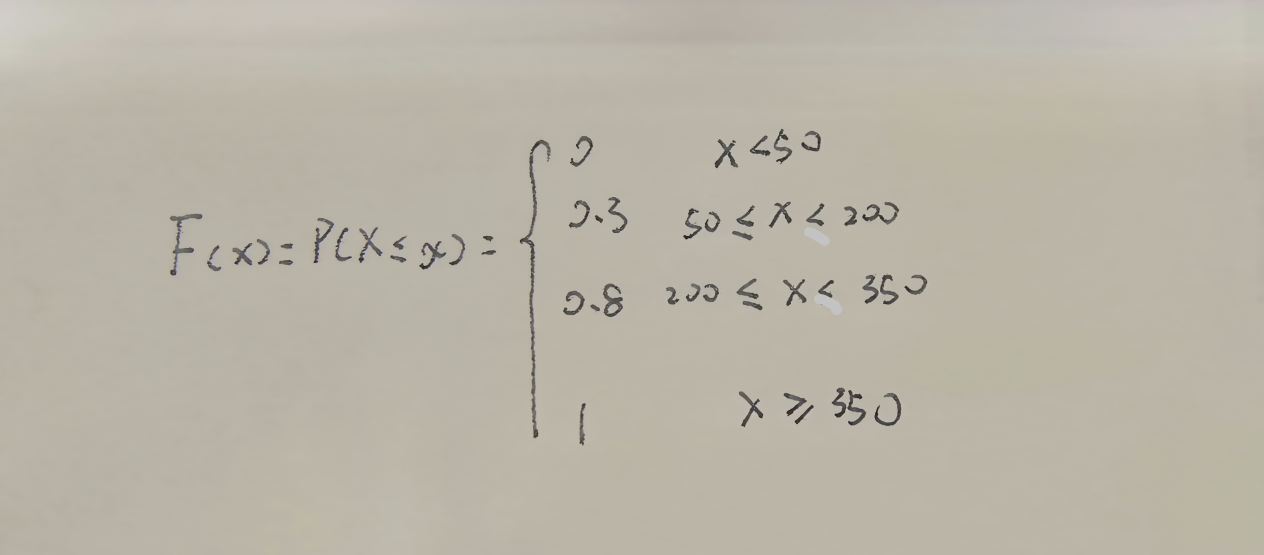 F(x) = P(X ≤ x) = { 0 x < 50
0.3 50 ≤ x < 200
0.8 200 ≤ x < 350
1 x ≥ 350